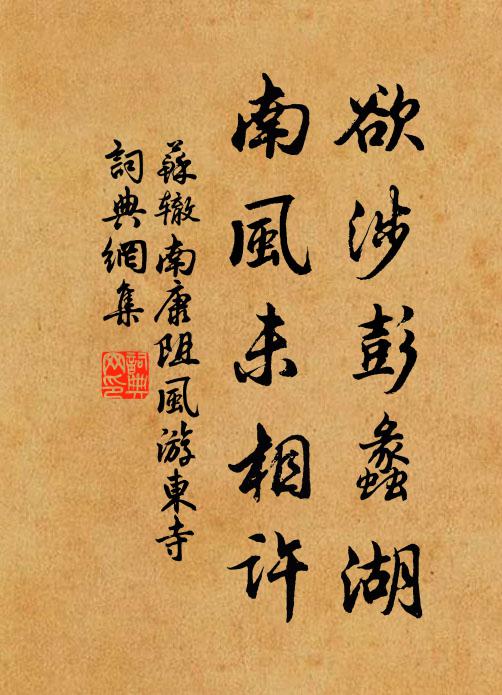 欲涉彭蠡湖
南風未相許
蘇辙南康阻風游東寺
詞典網集
詞典網印